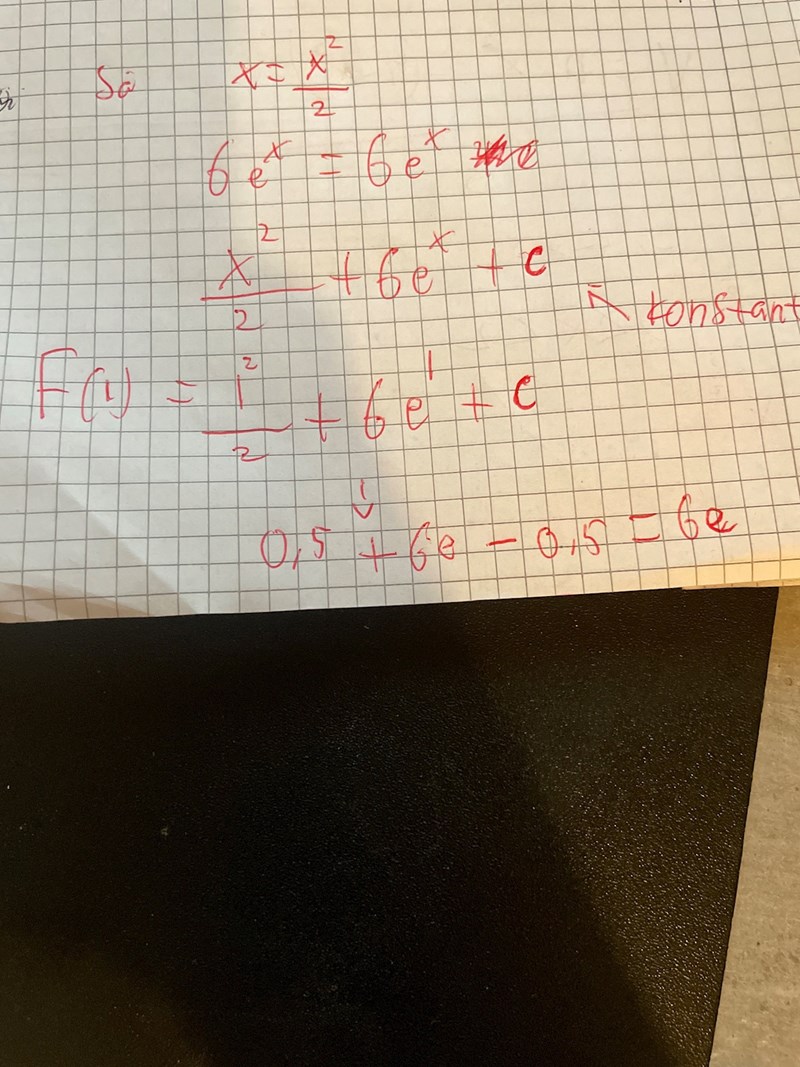 Så x = x²/2
6eˣ = 6eˣ
x²/2 + 6eˣ + c
↖ konstant
F(1) = 1²/2 + 6e¹ + c
↓
0,5 + 6e - 0,5 = 6e